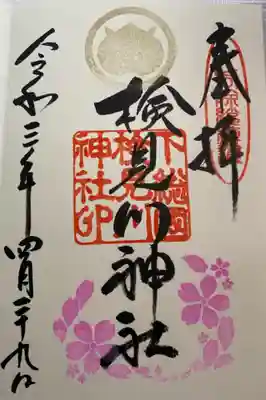 奉拝
検見川神社
下総国
検見川
神社印
令和三年四月二十九日